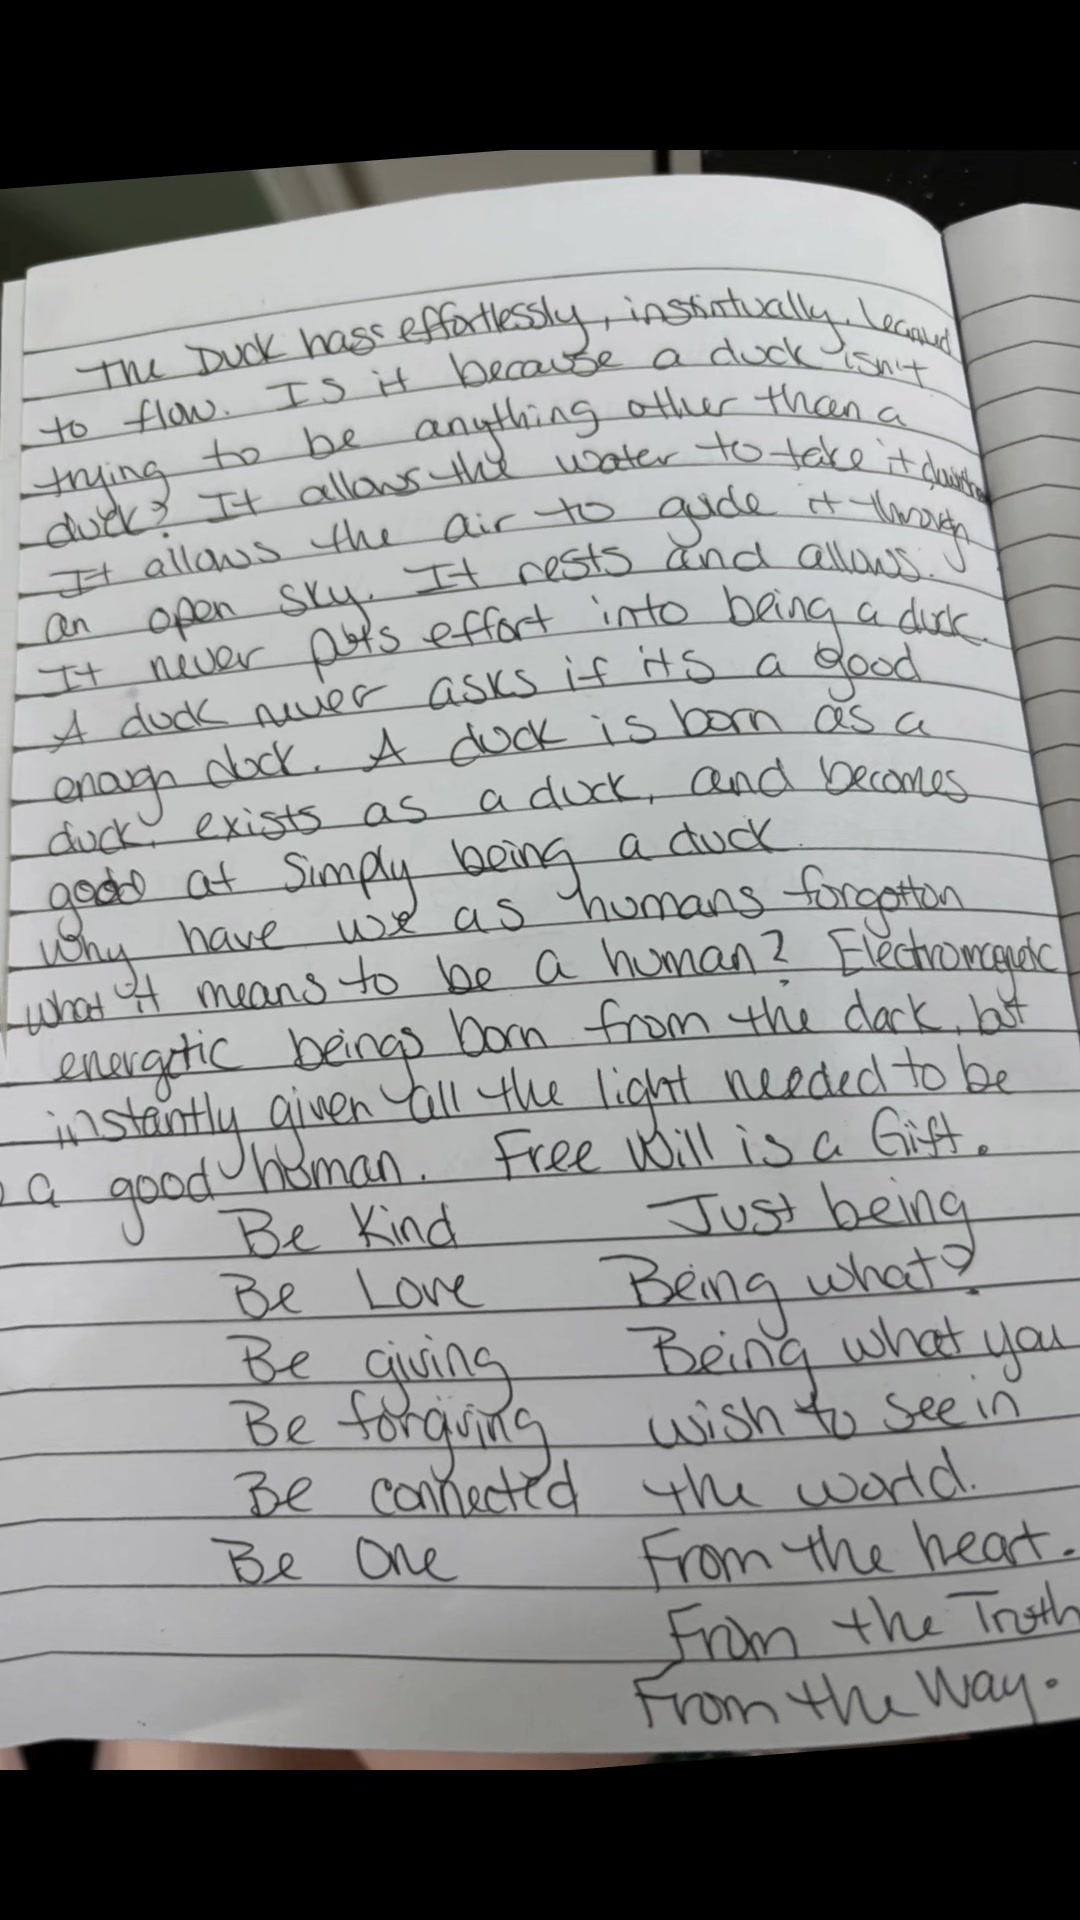 The Duck has effortlessly, instintually, learned
to flow. Is it because a duck isn't
trying to be anything other than a
duck? It allows the water to take it
It allows the air to guide it through
an open sky. It rests and allows.
It never puts effort into being a duck.
A duck never asks if its a good
enough duck. A duck is born as a
duck, exists as a duck, and becomes
good at simply being a duck.
Why have we as humans forgotton
what it means to be a human? Electromagnetic
energetic beings born from the dark, but
instantly given all the light needed to be
a good human. Free Will is a Gift.
Be Kind
Be Love
Be giving
Be forgiving
Be connected
Be One
Just being
Being what?
Being what you
wish to see in
the world.
From the heart.
From the Truth
From the Way.